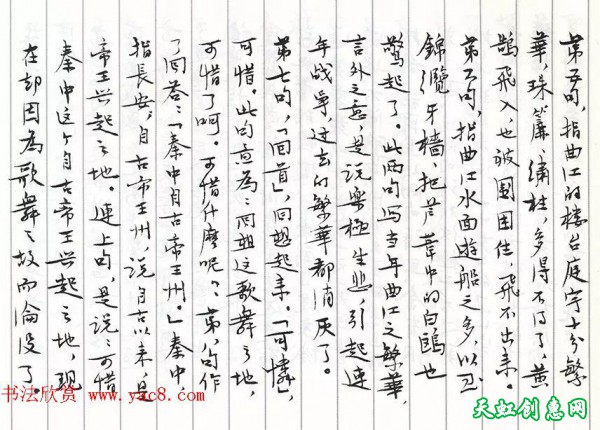 第五句，指曲江的楼台庭宇十分繁
華，珠簾、繡柱，多得不得了，黄
鵠飛入，也被圍困住，飛不出来。
第六句，指曲江水面遊船之多，以至
錦纜牙檣，把蘆葦中的白鷗也
驚起了。此两句写当年曲江之繁華，
言外之意，是说樂極生悲，引起連
年战争，过去的繁華都消灰了。
第七句，「回首」，回想起来。「可憐」，
可惜。此句意为：回想这歌舞之地，
可惜了呵。可惜什麼呢？第八句作
了回答：「秦中自古帝王州。」秦中，
指長安，自古帝王州，说自古以来，是
帝王兴起之地。連上句，是说：可惜
秦中这个自古帝王兴起之地，現
在却因為歌舞之故而淪没了。
书法欣赏 www.yac8.com
天虹创意网